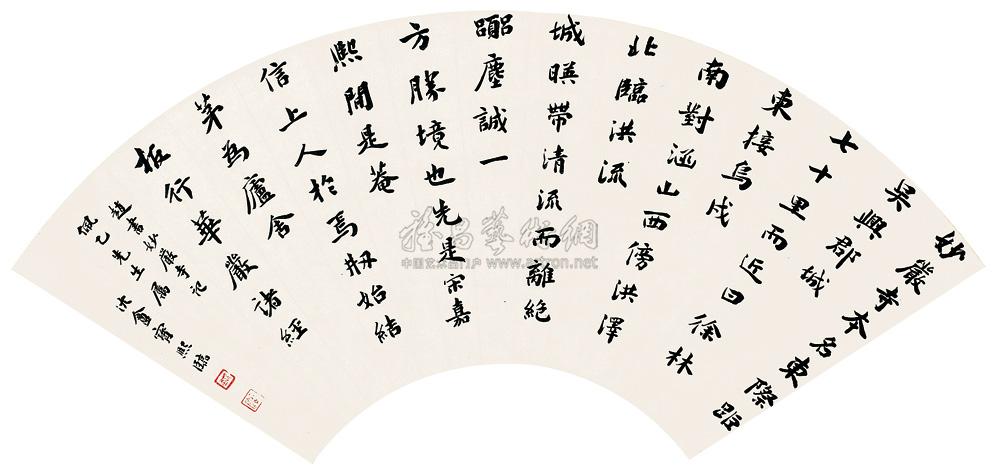 妙嚴寺本名東際距
吳興郡城
七十里而近曰徐林
東接烏戍
南對涵山西傍洪澤
北臨洪流
城暎帶清流而離絕
嚻塵誠一
方勝境也先是宋嘉
熙間是菴
信上人於焉刱始結
茅為廬舍
板行華嚴諸經
趙書妙嚴寺記
佩乙先生屬 沈盦寶熙臨
中国艺术品门户 www.artron.net